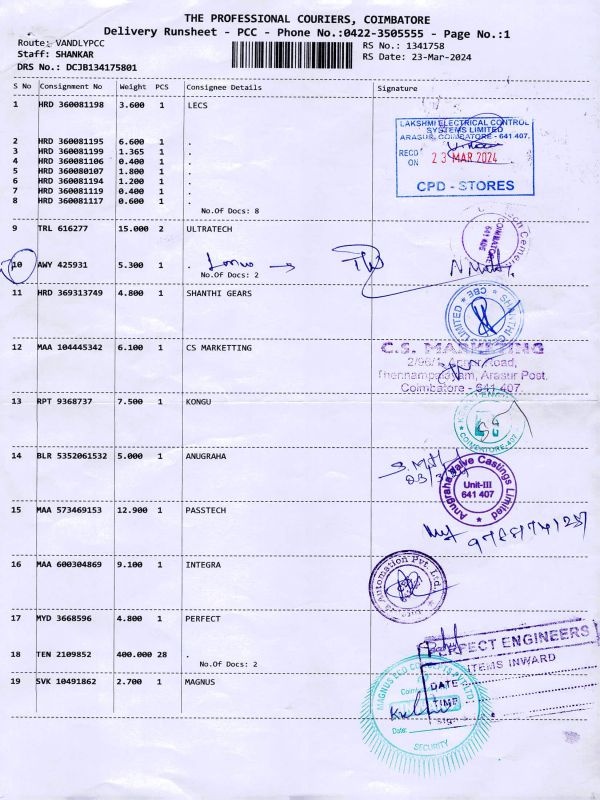 THE PROFESSIONAL COURIERS, COIMBATORE
Delivery Runsheet - PCC - Phone No.:0422-3505555 - Page No.:1
Route: VANDLYPCC
RS No.: 1341758
Staff: SHANKAR
RS Date: 23-Mar-2024
DRS No.: DCJB134175801
S No Consignment No Weight PCS Consignee Details Signature
1 HRD 360081198 3.600 1 LECS
2 HRD 360081195 6.600 1 .
3 HRD 360081199 1.365 1 .
4 HRD 360081106 0.400 1 .
5 HRD 360080107 1.800 1 .
6 HRD 360081194 1.200 1 .
7 HRD 360081119 0.400 1 .
8 HRD 360081117 0.600 1 .
No.Of Docs: 8
LAKSHMI ELECTRICAL CONTROL
SYSTEMS LIMITED
ARASUR, COIMBATORE - 641 407.
RECD ON 23 MAR 2024
CPD - STORES
9 TRL 616277 15.000 2 ULTRATECH
COIMBATORE
10 AWY 425931 5.300 1 .
No.Of Docs: 2
11 HRD 369313749 4.800 1 SHANTHI GEARS
SHANTHI GEARS LIMITED ★ CBE ★
12 MAA 104445342 6.100 1 CS MARKETTING
C.S. MARKETING
Thennampalayam, Arasur Post,
Coimbatore - 641 407.
13 RPT 9368737 7.500 1 KONGU
14 BLR 5352061532 5.000 1 ANUGRAHA
Anugraha Valve Castings Limited
Unit-III
641 407
15 MAA 573469153 12.900 1 PASSTECH
16 MAA 600304869 9.100 1 INTEGRA
Automation Pvt. Ltd.
17 MYD 3668596 4.800 1 PERFECT
PERFECT ENGINEERS
ITEMS INWARD
DATE
TIME
Sign
18 TEN 2109852 400.000 28 .
No.Of Docs: 2
19 SVK 10491862 2.700 1 MAGNUS
Date:
SECURITY